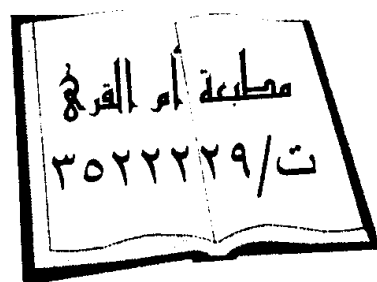 مطبعة أم القرى
ت/٣٥٢٢٢٢٩